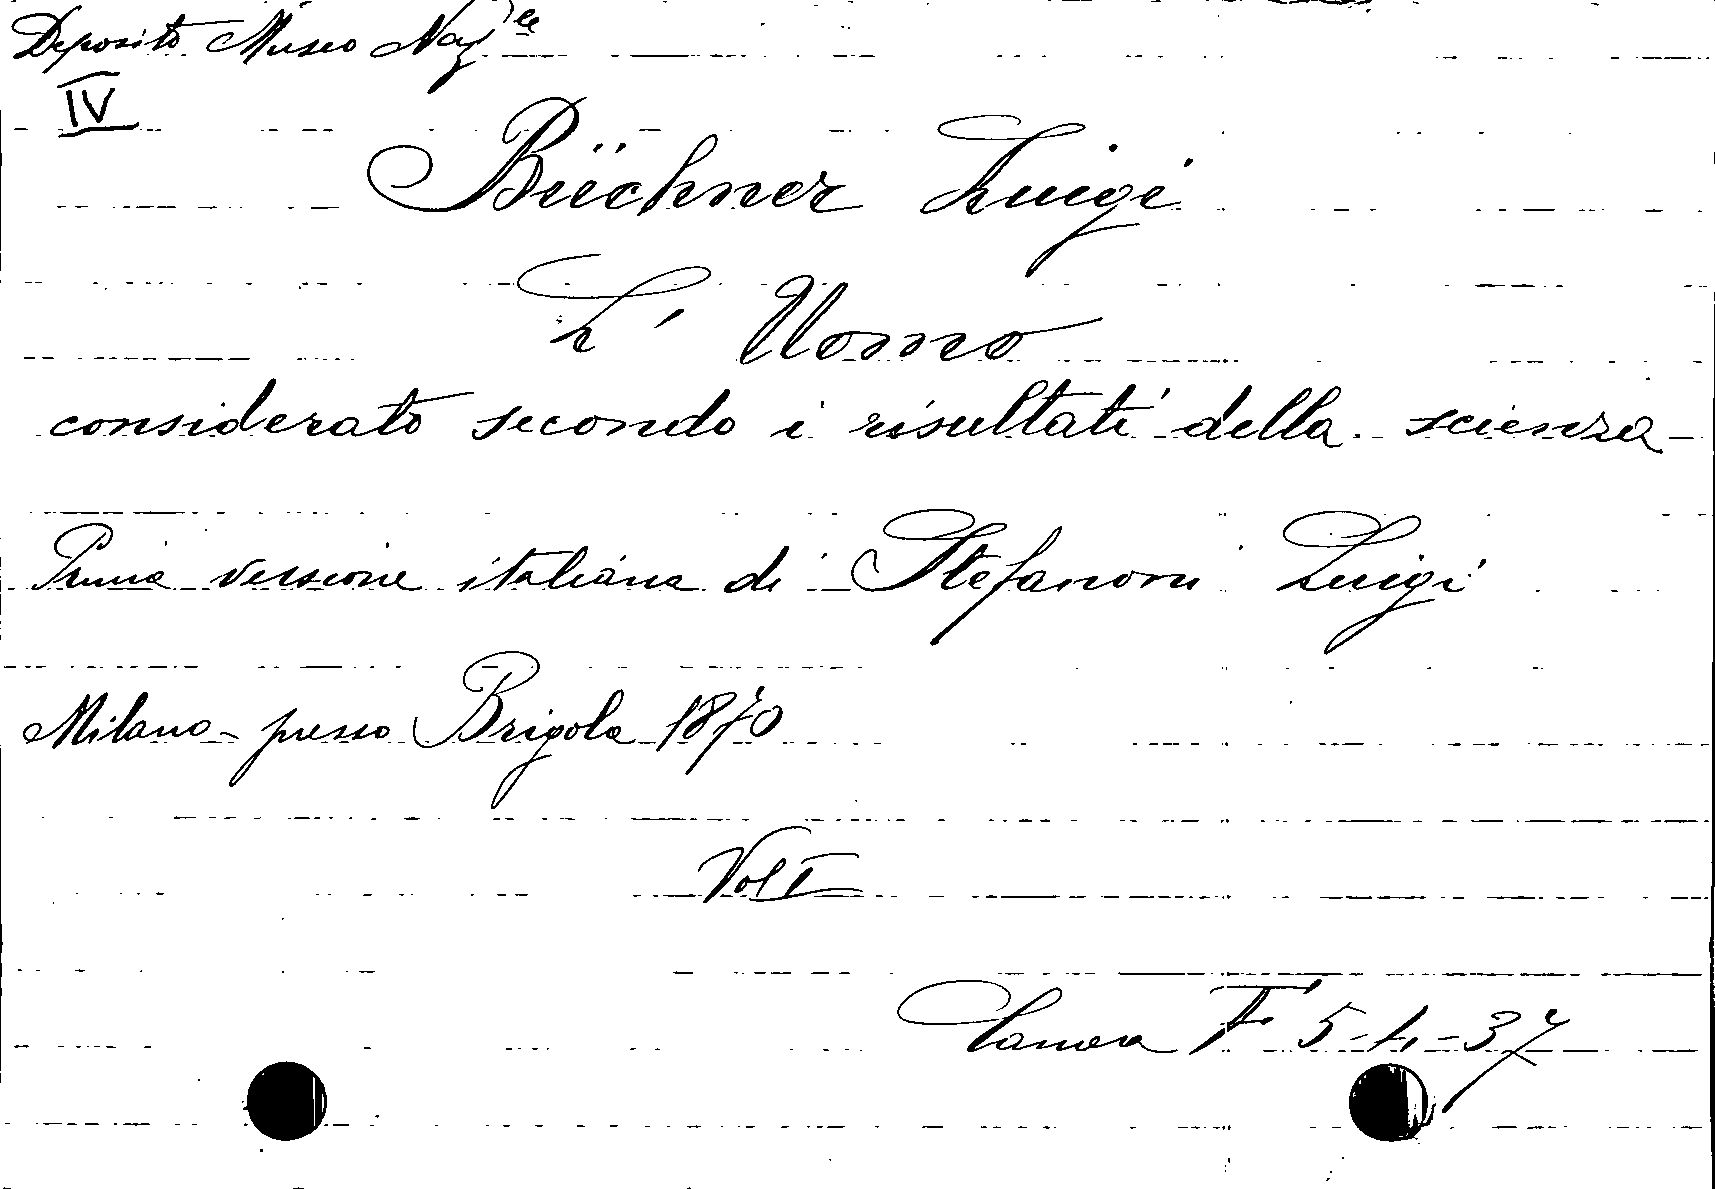 Deposito Museo Naz.le
IV
Büchner Luigi
L' Uomo
considerato secondo i risultati della scienza
Prima versione italiana di Stefanoni Luigi
Milano - presso Brigola 1870
Vol I
Camera F 5-1,-37